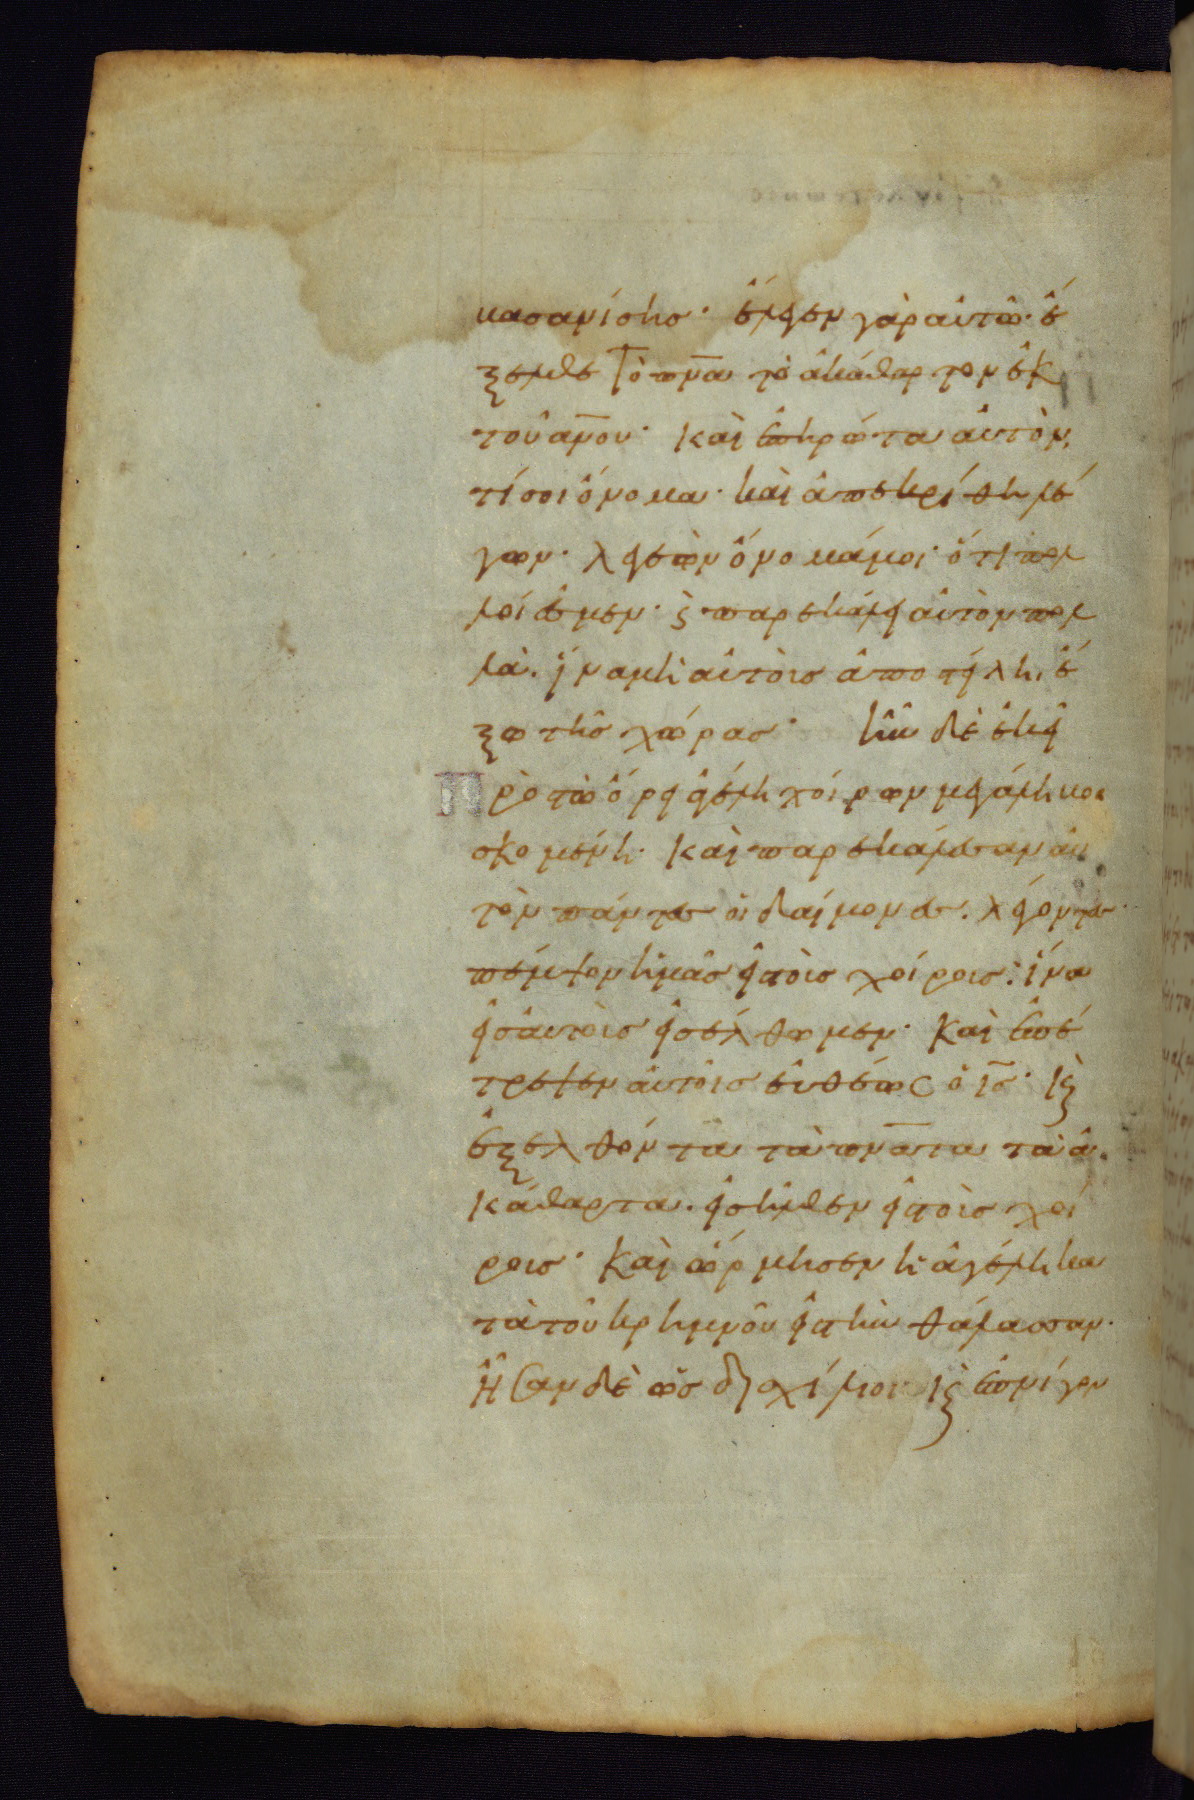 βασανίσης· ἔλεγεν γὰρ αὐτῶ· ἔ
ξελθε τὸ πν̅α τὸ ἀκάθαρτον ἐκ
τοῦ αν̅ου· καὶ ἐπηρώτα αὐτὸν,
τί σοι ὄνομα· καὶ ἀπεκρίθη λέ
γων· λεγεὼν ὄνομά μοι· ὅτι πολ
λοί ἐσμεν· ϗ παρεκάλει αὐτὸν πολ
λὰ. ἵνα μὴ αὐτοὺς ἀποστείλη, ἔ
ξω τῆς χώρας· ἦν δὲ ἐκεῖ
πρὸς τῶ ὄρει ἀγέλη χοίρων μεγάλη βο
σκομένη· καὶ παρεκάλεσαν αὐ
τὸν πάντες οἱ δαίμονες. λέγοντες·
πέμψον ἡμᾶς εἰς τοὺς χοίρους· ἵνα
εἰς αὐτοὺς εἰσέλθωμεν· καὶ ἐπέ
τρεψεν αὐτοῖς εὐθέως ὁ ις̅· ϗ
ἐξελθόντα τὰ πν̅ατα τὰ ἀ
κάθαρτα. εἰσῆλθεν εἰς τοὺς χοί
ρους· καὶ ὥρμησεν ἡ ἀγέλη κα
τὰ τοῦ κρημνοῦ εἰς τὴν θάλασσαν·
ἦσαν δὲ ὡς δισχίλιοι· ϗ ἐπνίγον